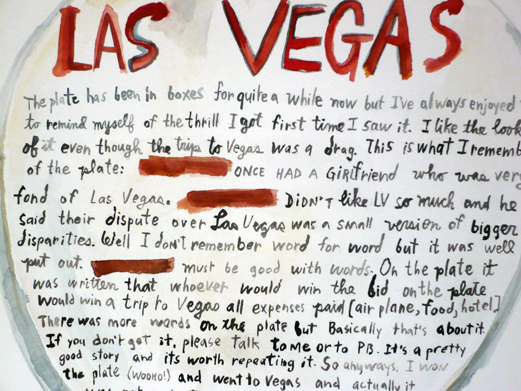 LAS VEGAS
The plate has been in boxes for quite a while now but I've always enjoyed
to remind myself of the thrill I got first time I saw it. I like the look
of it even though the trip to Vegas was a drag. This is what I rememb
of the plate: ONCE HAD A GIRLFRIEND who was very
fond of Las Vegas. DIDN'T like LV so much and he
said their dispute over Las Vegas was a small version of bigger
disparities. Well I don't remember word for word but it was well
put out. must be good with words. On the plate it
was written that whoever would win the bid on the plate
would win a trip to Vegas all expenses paid [air plane, food, hotel]
There was more words on the plate but Basically that's about it.
If you don't get it, please talk to me or to PB. It's a pretty
good story and its worth repeating it. So anyways, I won
the plate (WOOHO!) and went to Vegas and actually it
was not